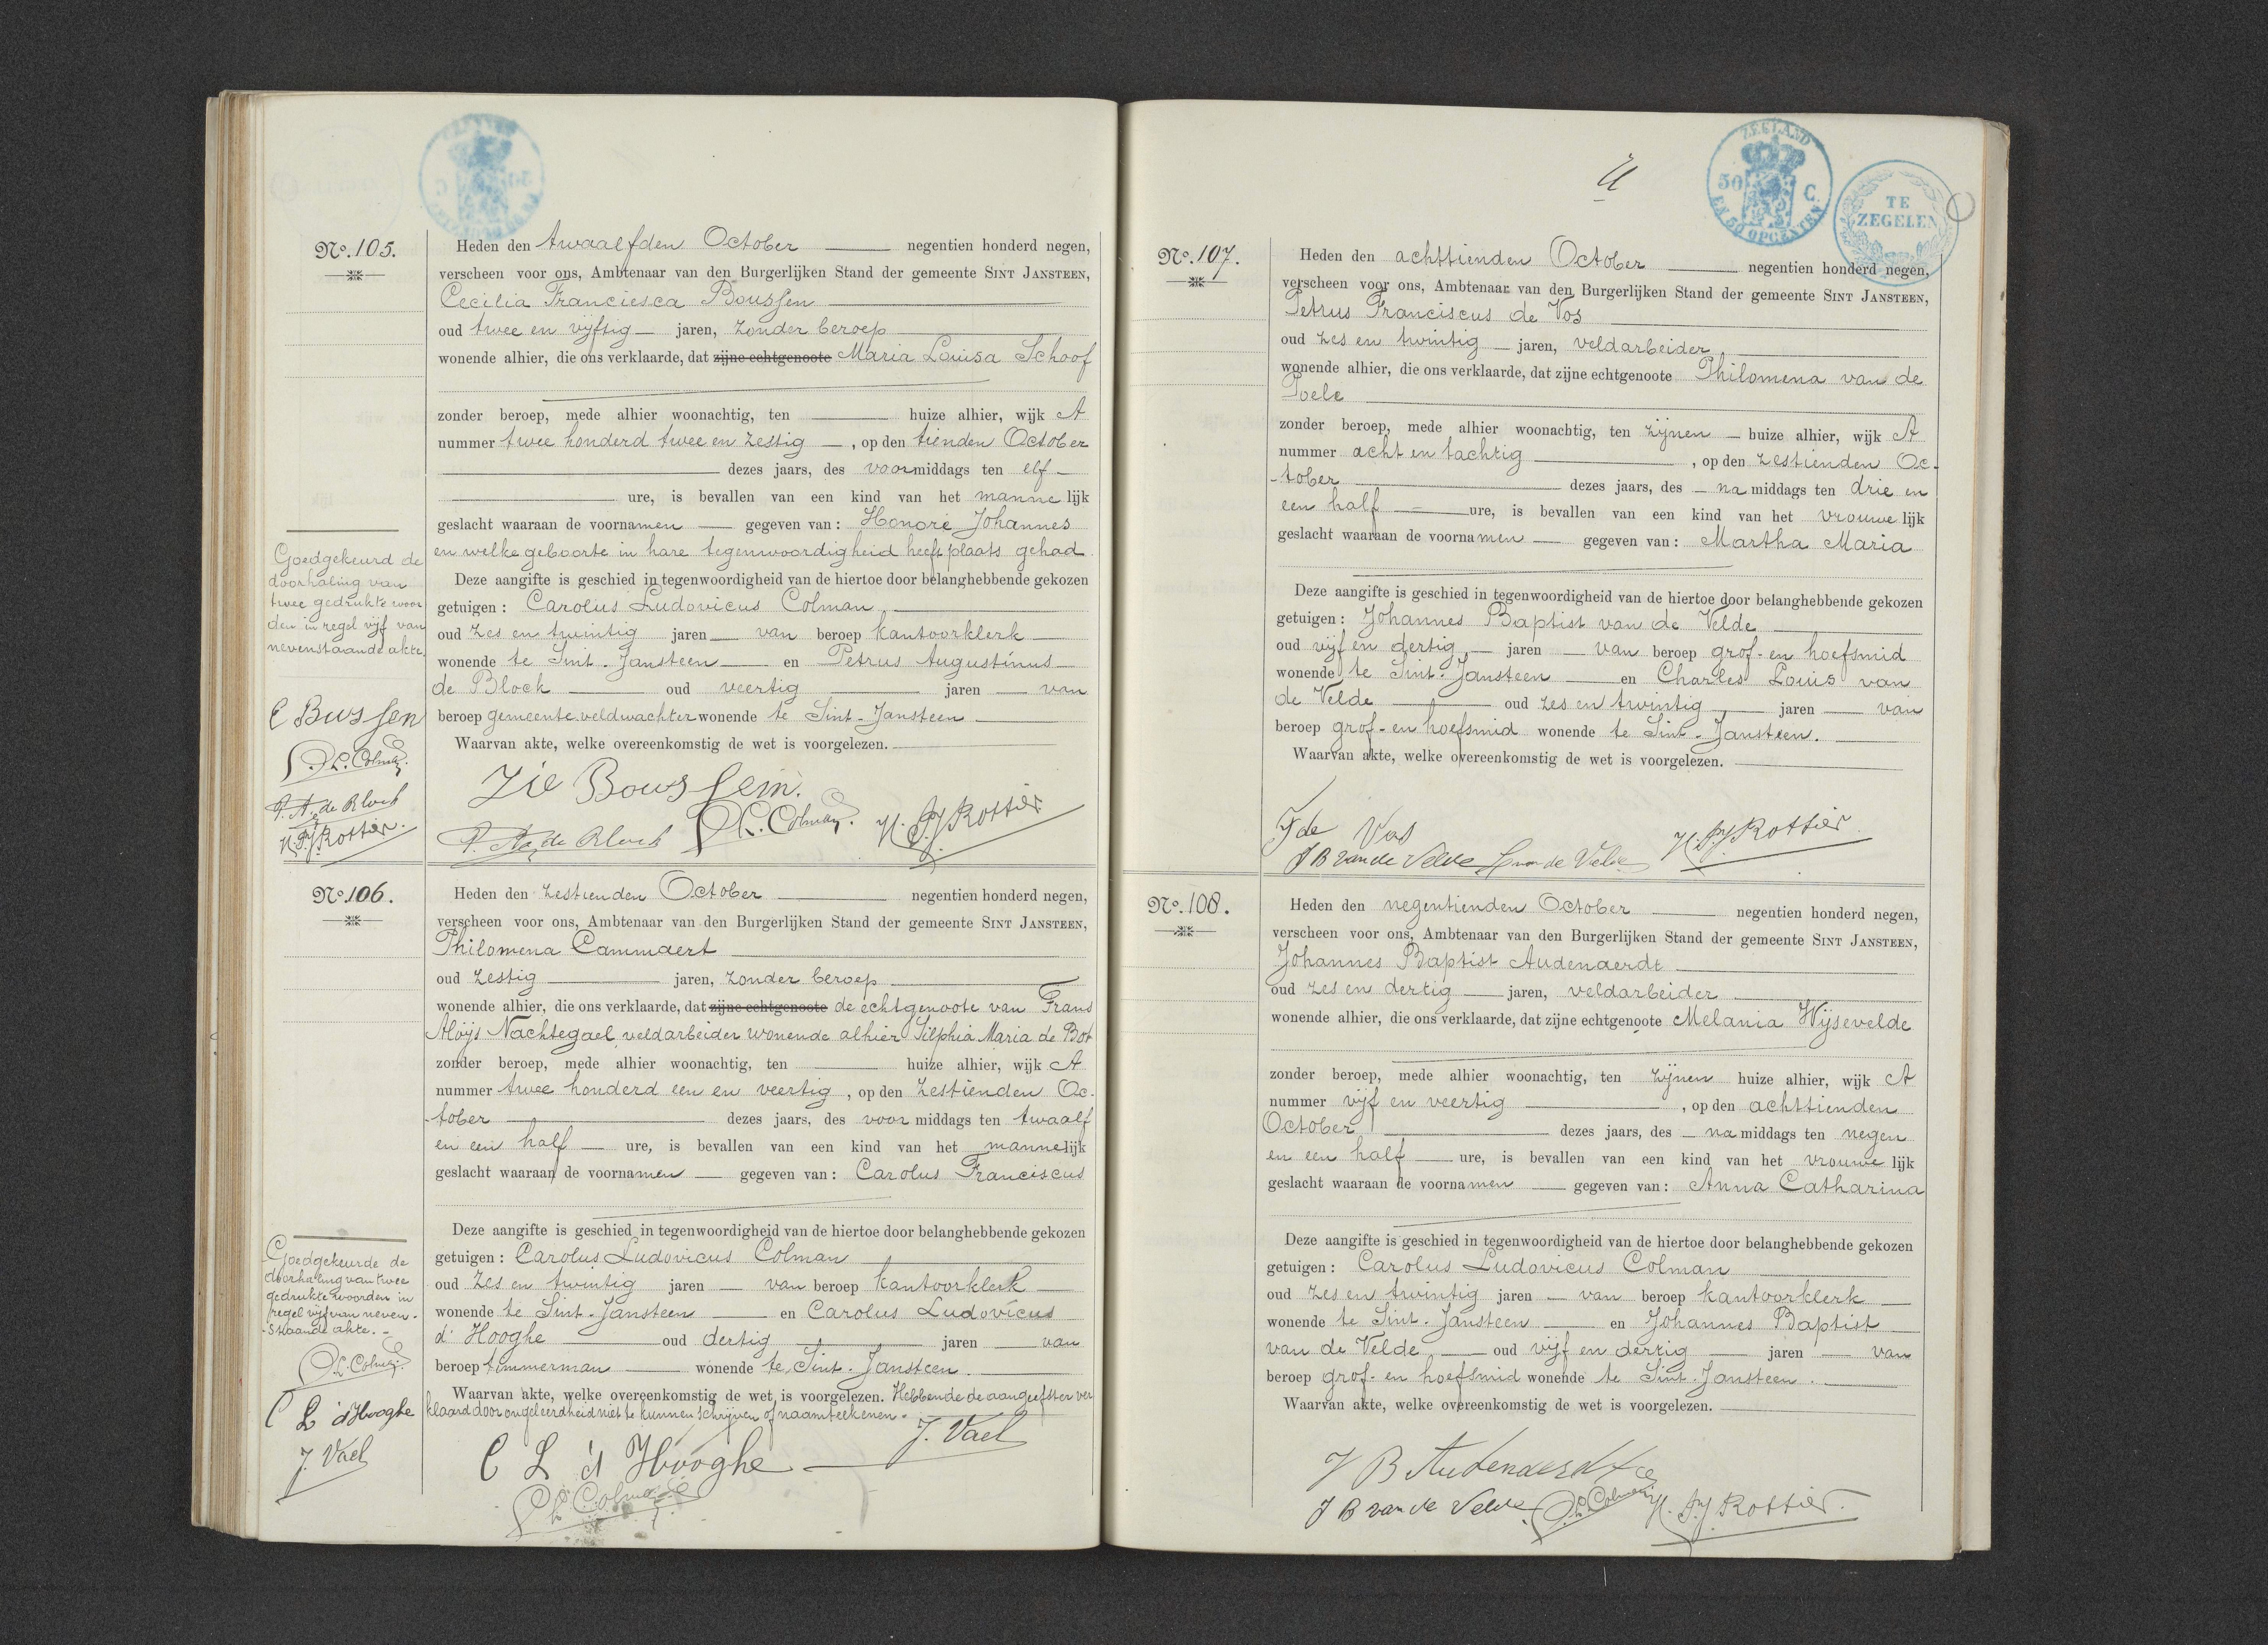 No. 105.
Heden den twaalfden October negentien honderd negen,
verscheen voor ons, Ambtenaar van den Burgerlijken Stand der gemeente SINT JANSTEEN,
Cecilia Franciesca Boussen
oud twee en vijftig jaren, zonder beroep
wonende alhier, die ons verklaarde, dat zijne echtgenoote Maria Louisa Schoof
zonder beroep, mede alhier woonachtig, ten huize alhier, wijk A
nummer twee honderd twee en zestig, op den tienden October
dezes jaars, des voormiddags ten elf
ure, is bevallen van een kind van het mannelijk
geslacht waaraan de voornamen gegeven van: Honoré Johannes
en welke geboorte in hare tegenwoordigheid heeft plaats gehad.
Deze aangifte is geschied in tegenwoordigheid van de hiertoe door belanghebbende gekozen
getuigen: Carolus Ludovicus Colman
oud zes en twintig jaren van beroep kantoorklerk
wonende te Sint-Jansteen en Petrus Augustinus
de Block oud veertig jaren van
beroep gemeente veldwachter wonende te Sint-Jansteen
Waarvan akte, welke overeenkomstig de wet is voorgelezen.
Goedgekeurd de
doorhaling van
twee gedrukte woor
den in regel vijf van
nevenstaande akte
C Bussen
C. L. Colman.
P. A. de Block
H. P. J. Rottier.
Zie Boussem.
P. A. de Block C. L. Colman. H. P. J. Rottier
No. 106.
Heden den zestienden October negentien honderd negen,
verscheen voor ons, Ambtenaar van den Burgerlijken Stand der gemeente SINT JANSTEEN,
Philomena Cammaert
oud zestig jaren, zonder beroep
wonende alhier, die ons verklaarde, dat zijne echtgenoote de echtgenoote van Frans
Aloÿs Nachtegael, veldarbeider wonende alhier Silphia Maria de Bot
zonder beroep, mede alhier woonachtig, ten huize alhier, wijk A
nummer twee honderd een en veertig, op den zestienden Oc-
tober dezes jaars, des voormiddags ten twaalf
en een half ure, is bevallen van een kind van het mannelijk
geslacht waaraan de voornamen gegeven van: Carolus Franciscus
Deze aangifte is geschied in tegenwoordigheid van de hiertoe door belanghebbende gekozen
getuigen: Carolus Ludovicus Colman
oud zes en twintig jaren van beroep kantoorklerk
wonende te Sint-Jansteen en Carolus Ludovicus
d'Hooghe oud dertig jaren van
beroep timmerman wonende te Sint-Jansteen.
Waarvan akte, welke overeenkomstig de wet is voorgelezen. Hebbende de aangeefster ver
klaard door ongeleerdheid niet te kunnen schrijven of naamteekenen.
Goedgekeurde de
doorhaling van twee
gedrukte woorden in
regel vijf van neven-
staande akte.
C. L. Colman.
C L d'Hooghe
J. Vael
C L d'Hooghe J. Vael
C. L. Colman
ZEELAND
50 C.
EN 50 OPCENTEN
TE
ZEGELEN
No. 107.
Heden den achttienden October negentien honderd negen,
verscheen voor ons, Ambtenaar van den Burgerlijken Stand der gemeente SINT JANSTEEN,
Petrus Franciscus de Vos
oud zes en twintig jaren, veldarbeider
wonende alhier, die ons verklaarde, dat zijne echtgenoote Philomena van de
Poele
zonder beroep, mede alhier woonachtig, ten zijnen huize alhier, wijk A
nummer acht en tachtig, op den zestienden Oc-
tober dezes jaars, des namiddags ten drie en
een half ure, is bevallen van een kind van het vrouwelijk
geslacht waaraan de voornamen gegeven van: Martha Maria
Deze aangifte is geschied in tegenwoordigheid van de hiertoe door belanghebbende gekozen
getuigen: Johannes Baptist van de Velde
oud vijf en dertig jaren van beroep grof- en hoefsmid
wonende te Sint-Jansteen en Charles Louis van
de Velde oud zes en twintig jaren van
beroep grof- en hoefsmid wonende te Sint-Jansteen.
Waarvan akte, welke overeenkomstig de wet is voorgelezen.
F de Vos
J B van de Velde van de Velde H. P. J. Rottier
No. 108.
Heden den negentienden October negentien honderd negen,
verscheen voor ons, Ambtenaar van den Burgerlijken Stand der gemeente SINT JANSTEEN,
Johannes Baptist Audenaerdt
oud zes en dertig jaren, veldarbeider
wonende alhier, die ons verklaarde, dat zijne echtgenoote Melania Wijsevelde
zonder beroep, mede alhier woonachtig, ten zijnen huize alhier, wijk A
nummer vijf en veertig, op den achttienden
October dezes jaars, des namiddags ten negen
en een half ure, is bevallen van een kind van het vrouwelijk
geslacht waaraan de voornamen gegeven van: Anna Catharina
Deze aangifte is geschied in tegenwoordigheid van de hiertoe door belanghebbende gekozen
getuigen: Carolus Ludovicus Colman
oud zes en twintig jaren van beroep kantoorklerk
wonende te Sint-Jansteen en Johannes Baptist
van de Velde oud vijf en dertig jaren van
beroep grof- en hoefsmid wonende te Sint-Jansteen.
Waarvan akte, welke overeenkomstig de wet is voorgelezen.
J B Audenaerdt
J B van de Velde C. L. Colman H. P. J. Rottier.